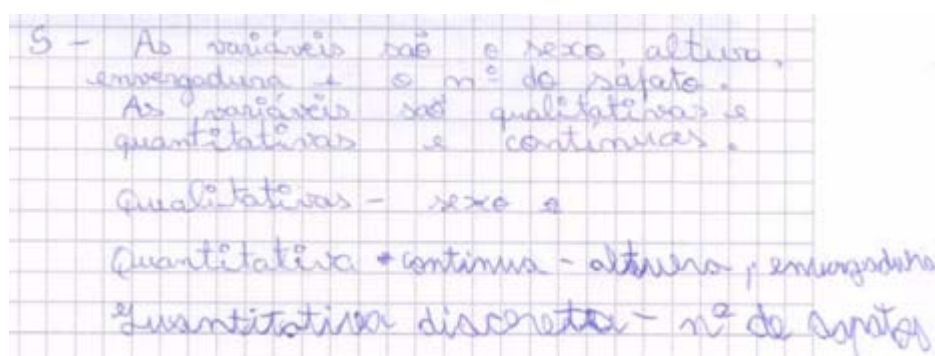 5 - As variáveis são o sexo, altura,
envergadura e o nº do sapato.
As variáveis são qualitativas e
quantitativas e continuas.
Qualitativas - sexo e
Quantitativa continua - altura, envergadura
Quantitativa discreta - nº de sapatos